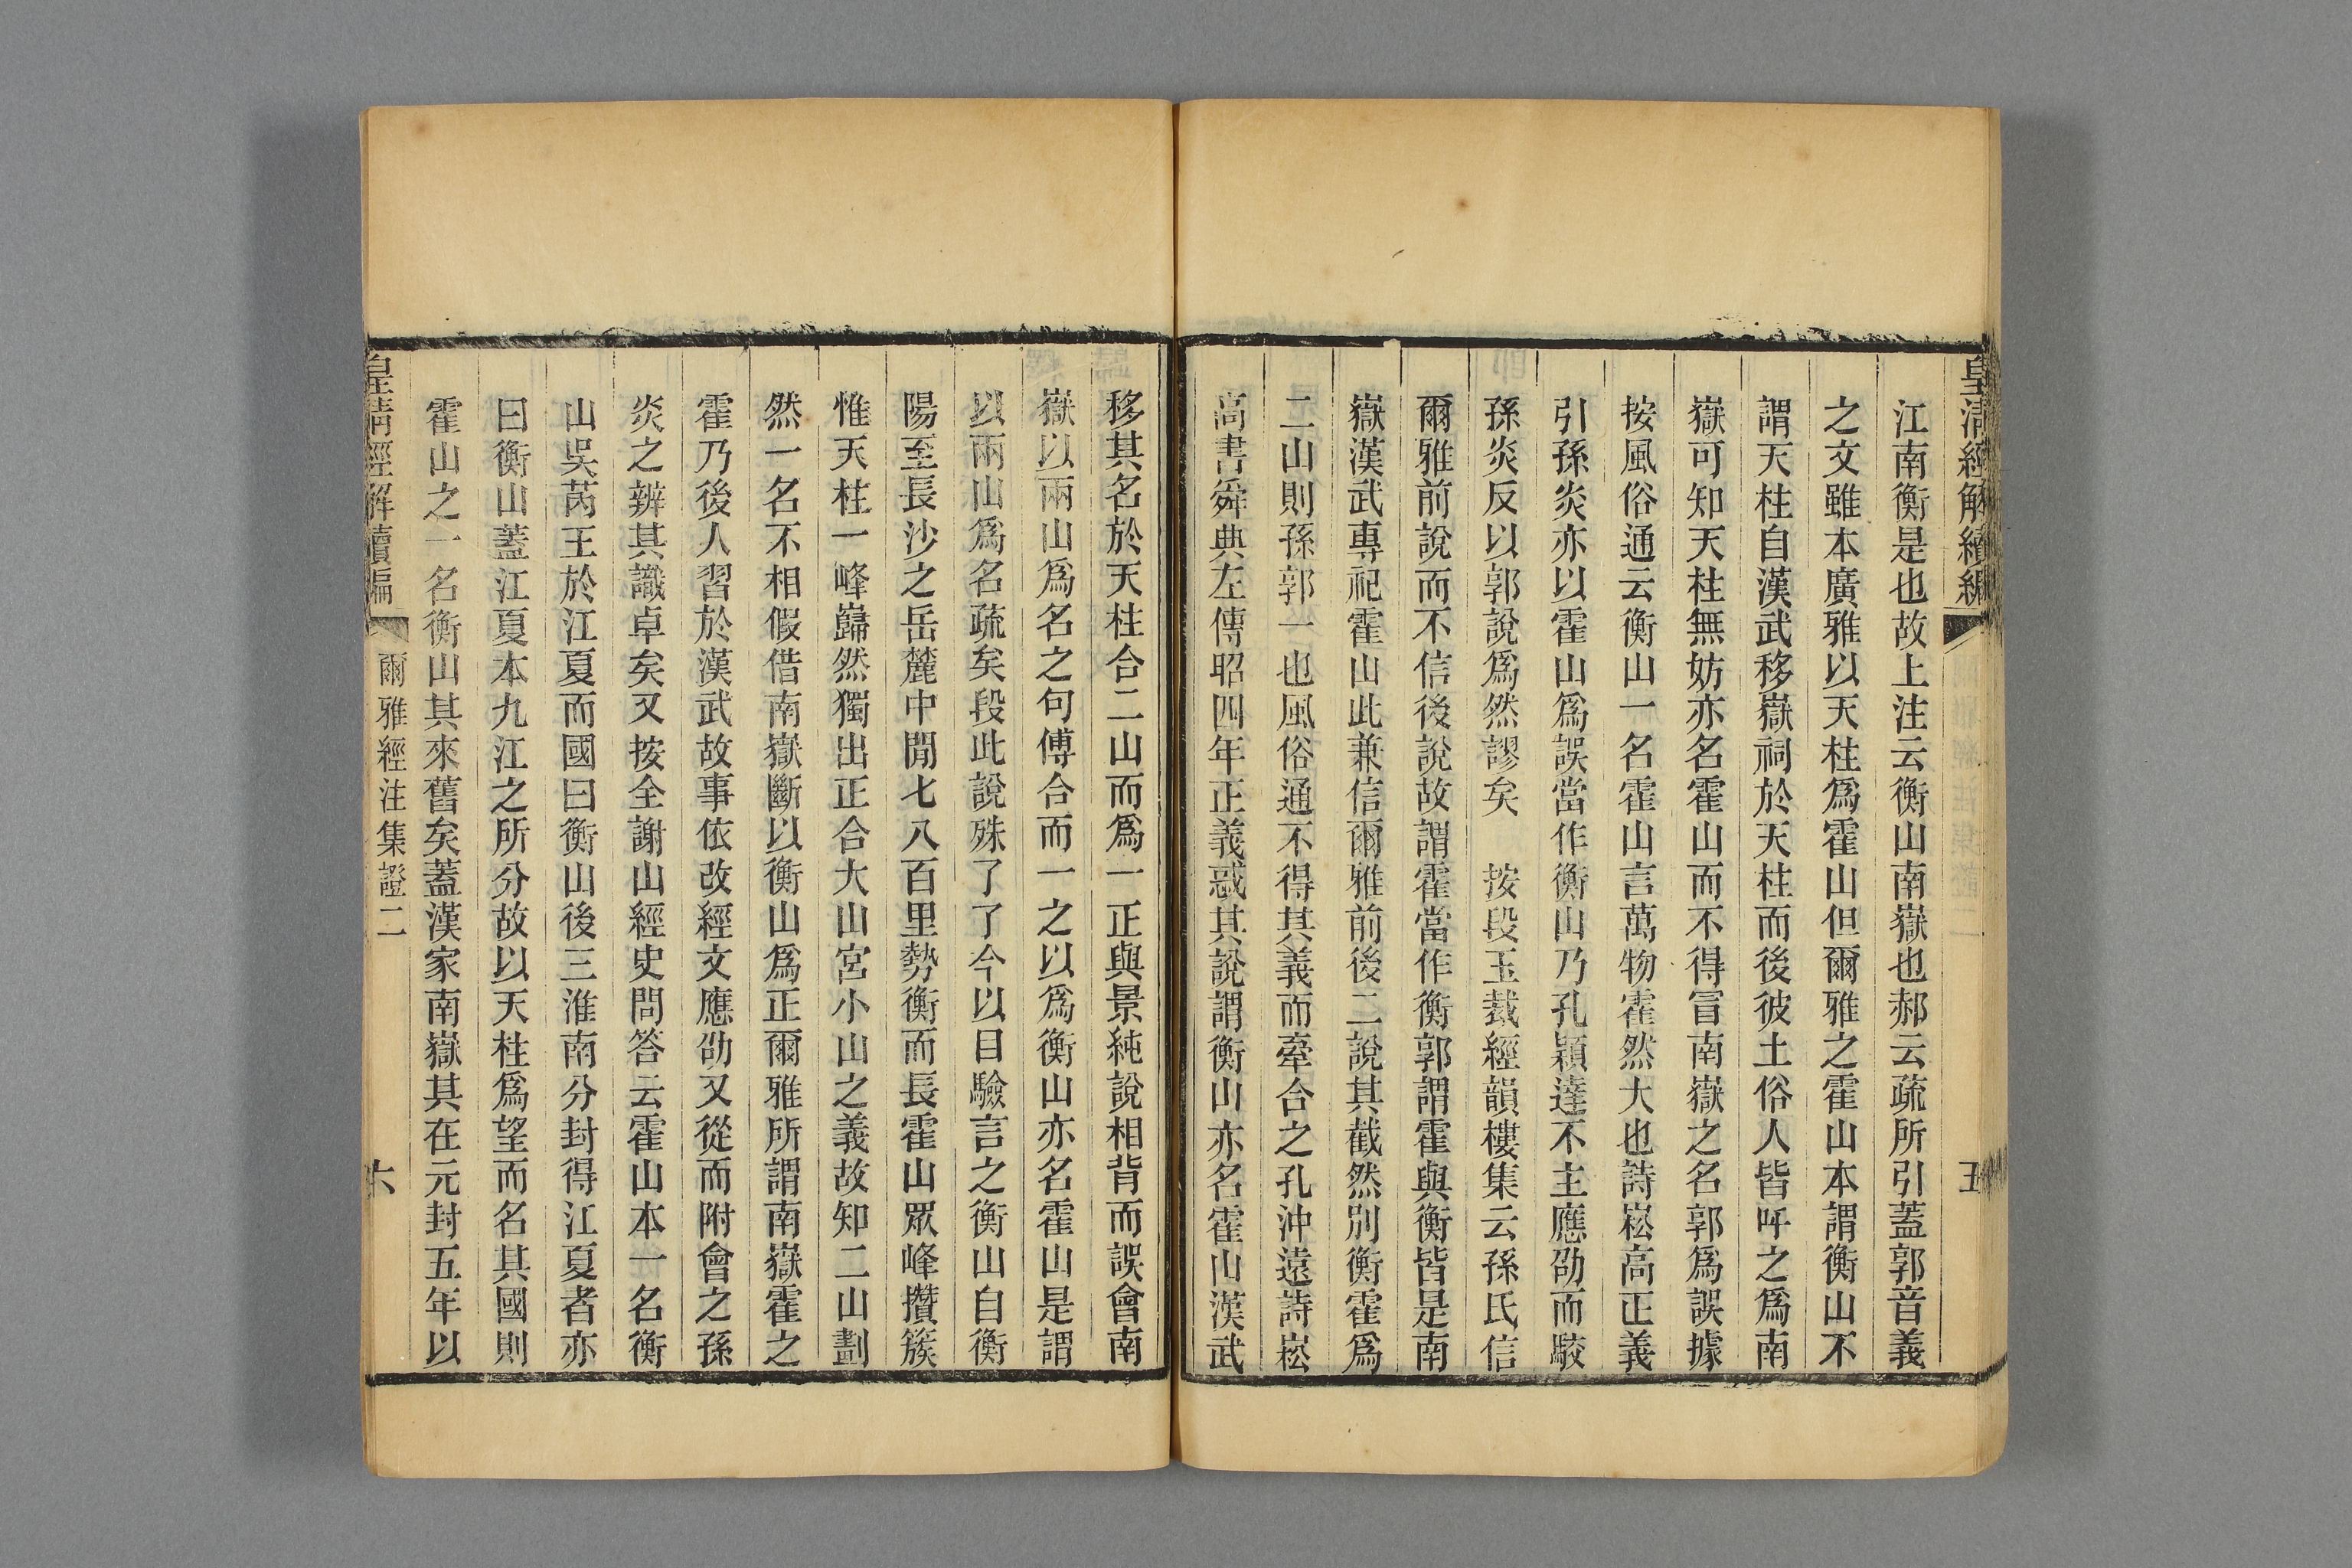 皇清經解續編
五
江南衡是也故上注云衡山南嶽也郝云疏所引蓋郭音義
之文雖本廣雅以天柱爲霍山但爾雅之霍山本謂衡山不
謂天柱自漢武移嶽祠於天柱而後彼土俗人皆呼之爲南
嶽可知天柱無妨亦名霍山而不得冒南嶽之名郭爲誤據
按風俗通云衡山一名霍山言萬物霍然大也詩崧高正義
引孫炎亦以霍山爲誤當作衡山乃孔穎達不主應劭而駮
孫炎反以郭說爲然謬矣　按段玉裁經韻樓集云孫氏信
爾雅前說而不信後說故謂霍當作衡郭謂霍與衡皆是南
嶽漢武專祀霍山此兼信爾雅前後二說其截然別衡霍爲
二山則孫郭一也風俗通不得其義而牽合之孔沖遠詩崧
高書舜典左傳昭四年正義惑其說謂衡山亦名霍山漢武
移其名於天柱合二山而爲一正與景純說相背而誤會南
嶽以兩山爲名之句傅合而一之以爲衡山亦名霍山是謂
以兩山爲名疏矣段此說殊了了今以目驗言之衡山自衡
陽至長沙之岳麓中閒七八百里勢衡而長霍山眾峰攢簇
惟天柱一峰巋然獨出正合大山宮小山之義故知二山劃
然一名不相假借南嶽斷以衡山爲正爾雅所謂南嶽霍之
霍乃後人習於漢武故事依改經文應劭又從而附會之孫
炎之辨其識卓矣又按全謝山經史問答云霍山本一名衡
山吳芮王於江夏而國曰衡山後三淮南分封得江夏者亦
曰衡山蓋江夏本九江之所分故以天柱爲望而名其國則
霍山之一名衡山其來舊矣蓋漢家南嶽其在元封五年以
皇清經解續編
爾雅經注集證二
六